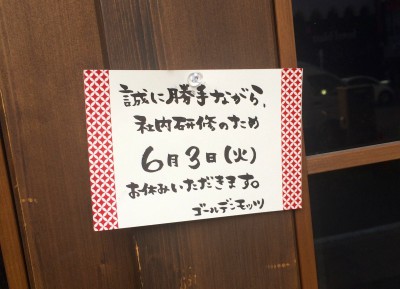 誠に勝手ながら、
社内研修のため
6月3日(火)
お休みいただきます。
ゴールデンモッツ